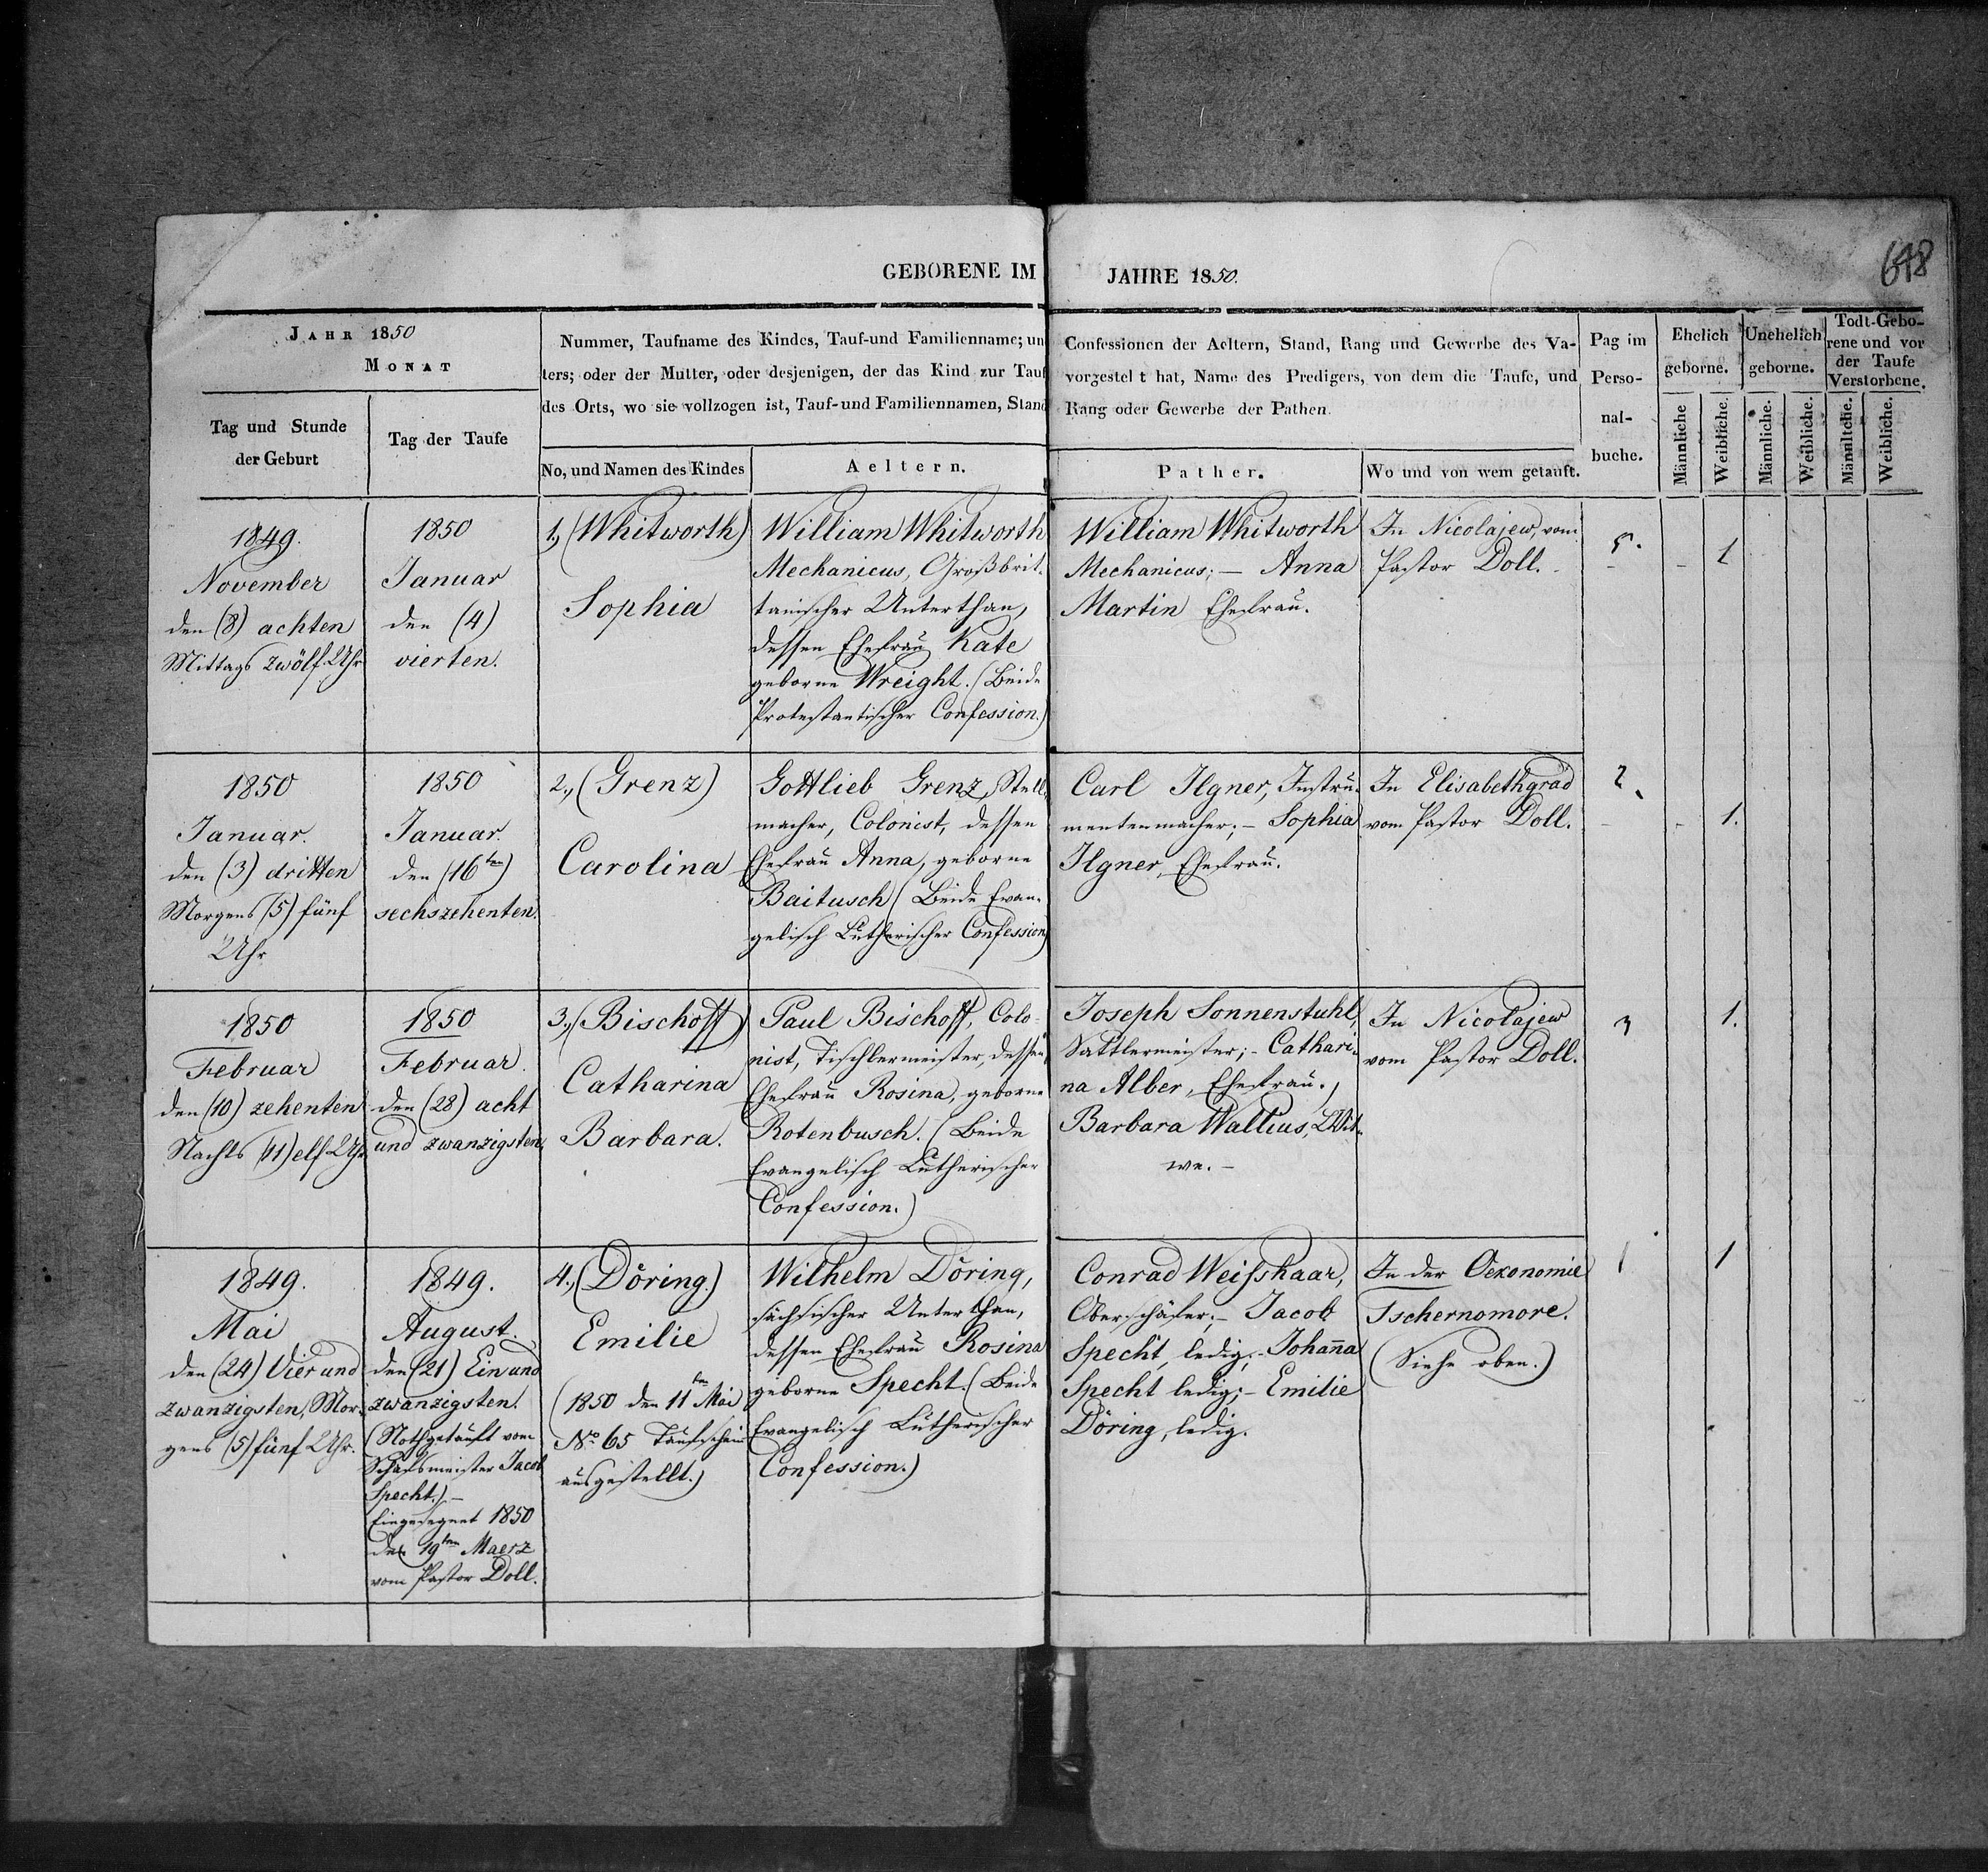 GEBORENE IM JAHRE 1850.
648
JAHR 1850
MONAT
Tag und Stunde
der Geburt
Tag der Taufe
Nummer, Taufname des Kindes, Tauf-und Familienname; un
ters; oder der Mutter, oder desjenigen, der das Kind zur Tauf
des Orts, wo sie vollzogen ist, Tauf-und Familiennamen, Stand
No, und Namen des Kindes
Aeltern.
Confessionen der Aeltern, Stand, Rang und Gewerbe des Va-
vorgestel t hat, Name des Predigers, von dem die Taufe, und
Rang oder Gewerbe der Pathen.
Pather.
Wo und von wem getauft.
Pag im
Perso-
nal-
buche.
Ehelich
geborne.
Unehelich
geborne.
Todt-Gebo-
rene und vor
der Taufe
Verstorbene.
Männliche
Weibliche.
Männliche.
Weibliche.
Männltche.
Weibliche.
1849.
November
den (8) achten
Mittags zwölf Uhr
1850
Januar
den (4)
vierten.
1., (Whitworth)
Sophia
William Whitworth
Mechanicus, Großbrit-
tanischer Unterthan,
dessen Ehefrau Kate
geborne Wreight. (Beide
Protestantischer Confession.)
William Whitworth
Mechanicus; — Anna
Martin Ehefrau.
In Nicolajew, vom
Pastor Doll.
5.
1
1850
Januar.
den (3) dritten
Morgens (5) fünf
Uhr
1850
Januar.
den (16ten)
sechszehenten.
2., (Grenz)
Carolina
Gottlieb Grenz, Stell-
macher, Colonist, dessen
Ehefrau Anna, geborne
Baitusch (Beide Evan-
gelisch Lutherischer Confession)
Carl Ilgner, Instru-
mentenmacher; — Sophia
Ilgner, Ehefrau.
In Elisabethgrad
vom Pastor Doll.
2.
1.
1850
Februar
den (10) zehenten
Nachts (11) elf Uhr
1850
Februar.
den (28) acht
und zwanzigsten.
3., (Bischoff)
Catharina
Barbara.
Paul Bischoff, Colo-
nist, Tischlermeister, dessen
Ehefrau Rosina, geborne
Rotenbusch. (Beide
Evangelisch Lutherischer
Confession.)
Joseph Sonnenstuhl,
Sattlermeister; — Cathari-
na Alber, Ehefrau.,
Barbara Wallius, Wit-
we. —
In Nicolajew
vom Pastor Doll.
3
1.
1849.
Mai
den (24) Vier und
zwanzigsten, Mor-
gens (5) fünf Uhr.
1849.
August.
den (21) Ein und
zwanzigsten.
(Nothgetauft vom
Schafsmeister Jacob
Specht.) —
Eingesegnet 1850
den 19ten Maerz
vom Pastor Doll.
4., (Döring.)
Emilie
(1850 den 11ten Mai
No 65 Taufschein
ausgestellt.)
Wilhelm Döring,
sächsischer Unterthan,
dessen Ehefrau Rosina
geborne Specht. (Beide
Evangelisch Lutherischer
Confession.)
Conrad Weisshaar,
Oberschäfer; — Jacob
Specht, ledig; — Johanna
Specht ledig; — Emilie
Döring, ledig.
In der Oekonomie
Tschernomore.
(Siehe oben.)
1
1